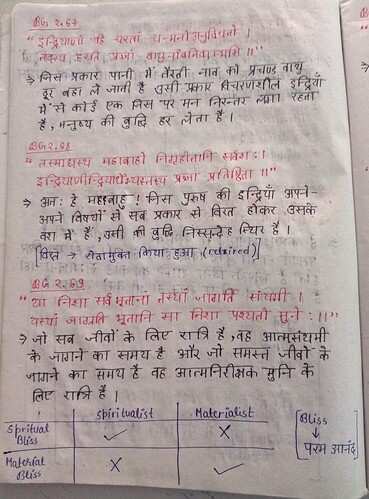 BG 2.67
" इन्द्रियाणां हि चरतां यन्मनोऽनुविधीयते ।
तदस्य हरति प्रज्ञां वायुर्नावमिवाम्भसि ॥"
→ जिस प्रकार पानी में तैरती नाव को प्रचण्ड वायु
दूर बहा ले जाती है उसी प्रकार विचरणशील इन्द्रियाँ
में से कोई एक जिस पर मन निरन्तर लगा रहता
है, मनुष्य की बुद्धि हर लेता है ।
BG 2.68
" तस्माद्यस्य महाबाहो निगृहीतानि सर्वशः ।
इन्द्रियाणीन्द्रियार्थेभ्यस्तस्य प्रज्ञा प्रतिष्ठिता ॥"
→ अतः हे महाबाहु ! जिस पुरुष की इन्द्रियाँ अपने-
अपने विषयों से सब प्रकार से विरत होकर उसके
वश में हैं, उसी की बुद्धि निस्सन्देह स्थिर है ।
[विरत → सेवामुक्त किया हुआ (retired)]
BG 2.69
" या निशा सर्वभूतानां तस्यां जागर्ति संयमी ।
यस्यां जाग्रति भूतानि सा निशा पश्यतो मुनेः ॥"
→ जो सब जीवों के लिए रात्रि है, वह आत्मसंयमी
के जागने का समय है और जो समस्त जीवों के
जागने का समय है वह आत्मनिरीक्षक मुनि के
लिए रात्रि है ।
Spiritualist Materialist
Spritual Bliss ✓ X
Material Bliss X ✓
[Bliss
↓
परम आनंद]